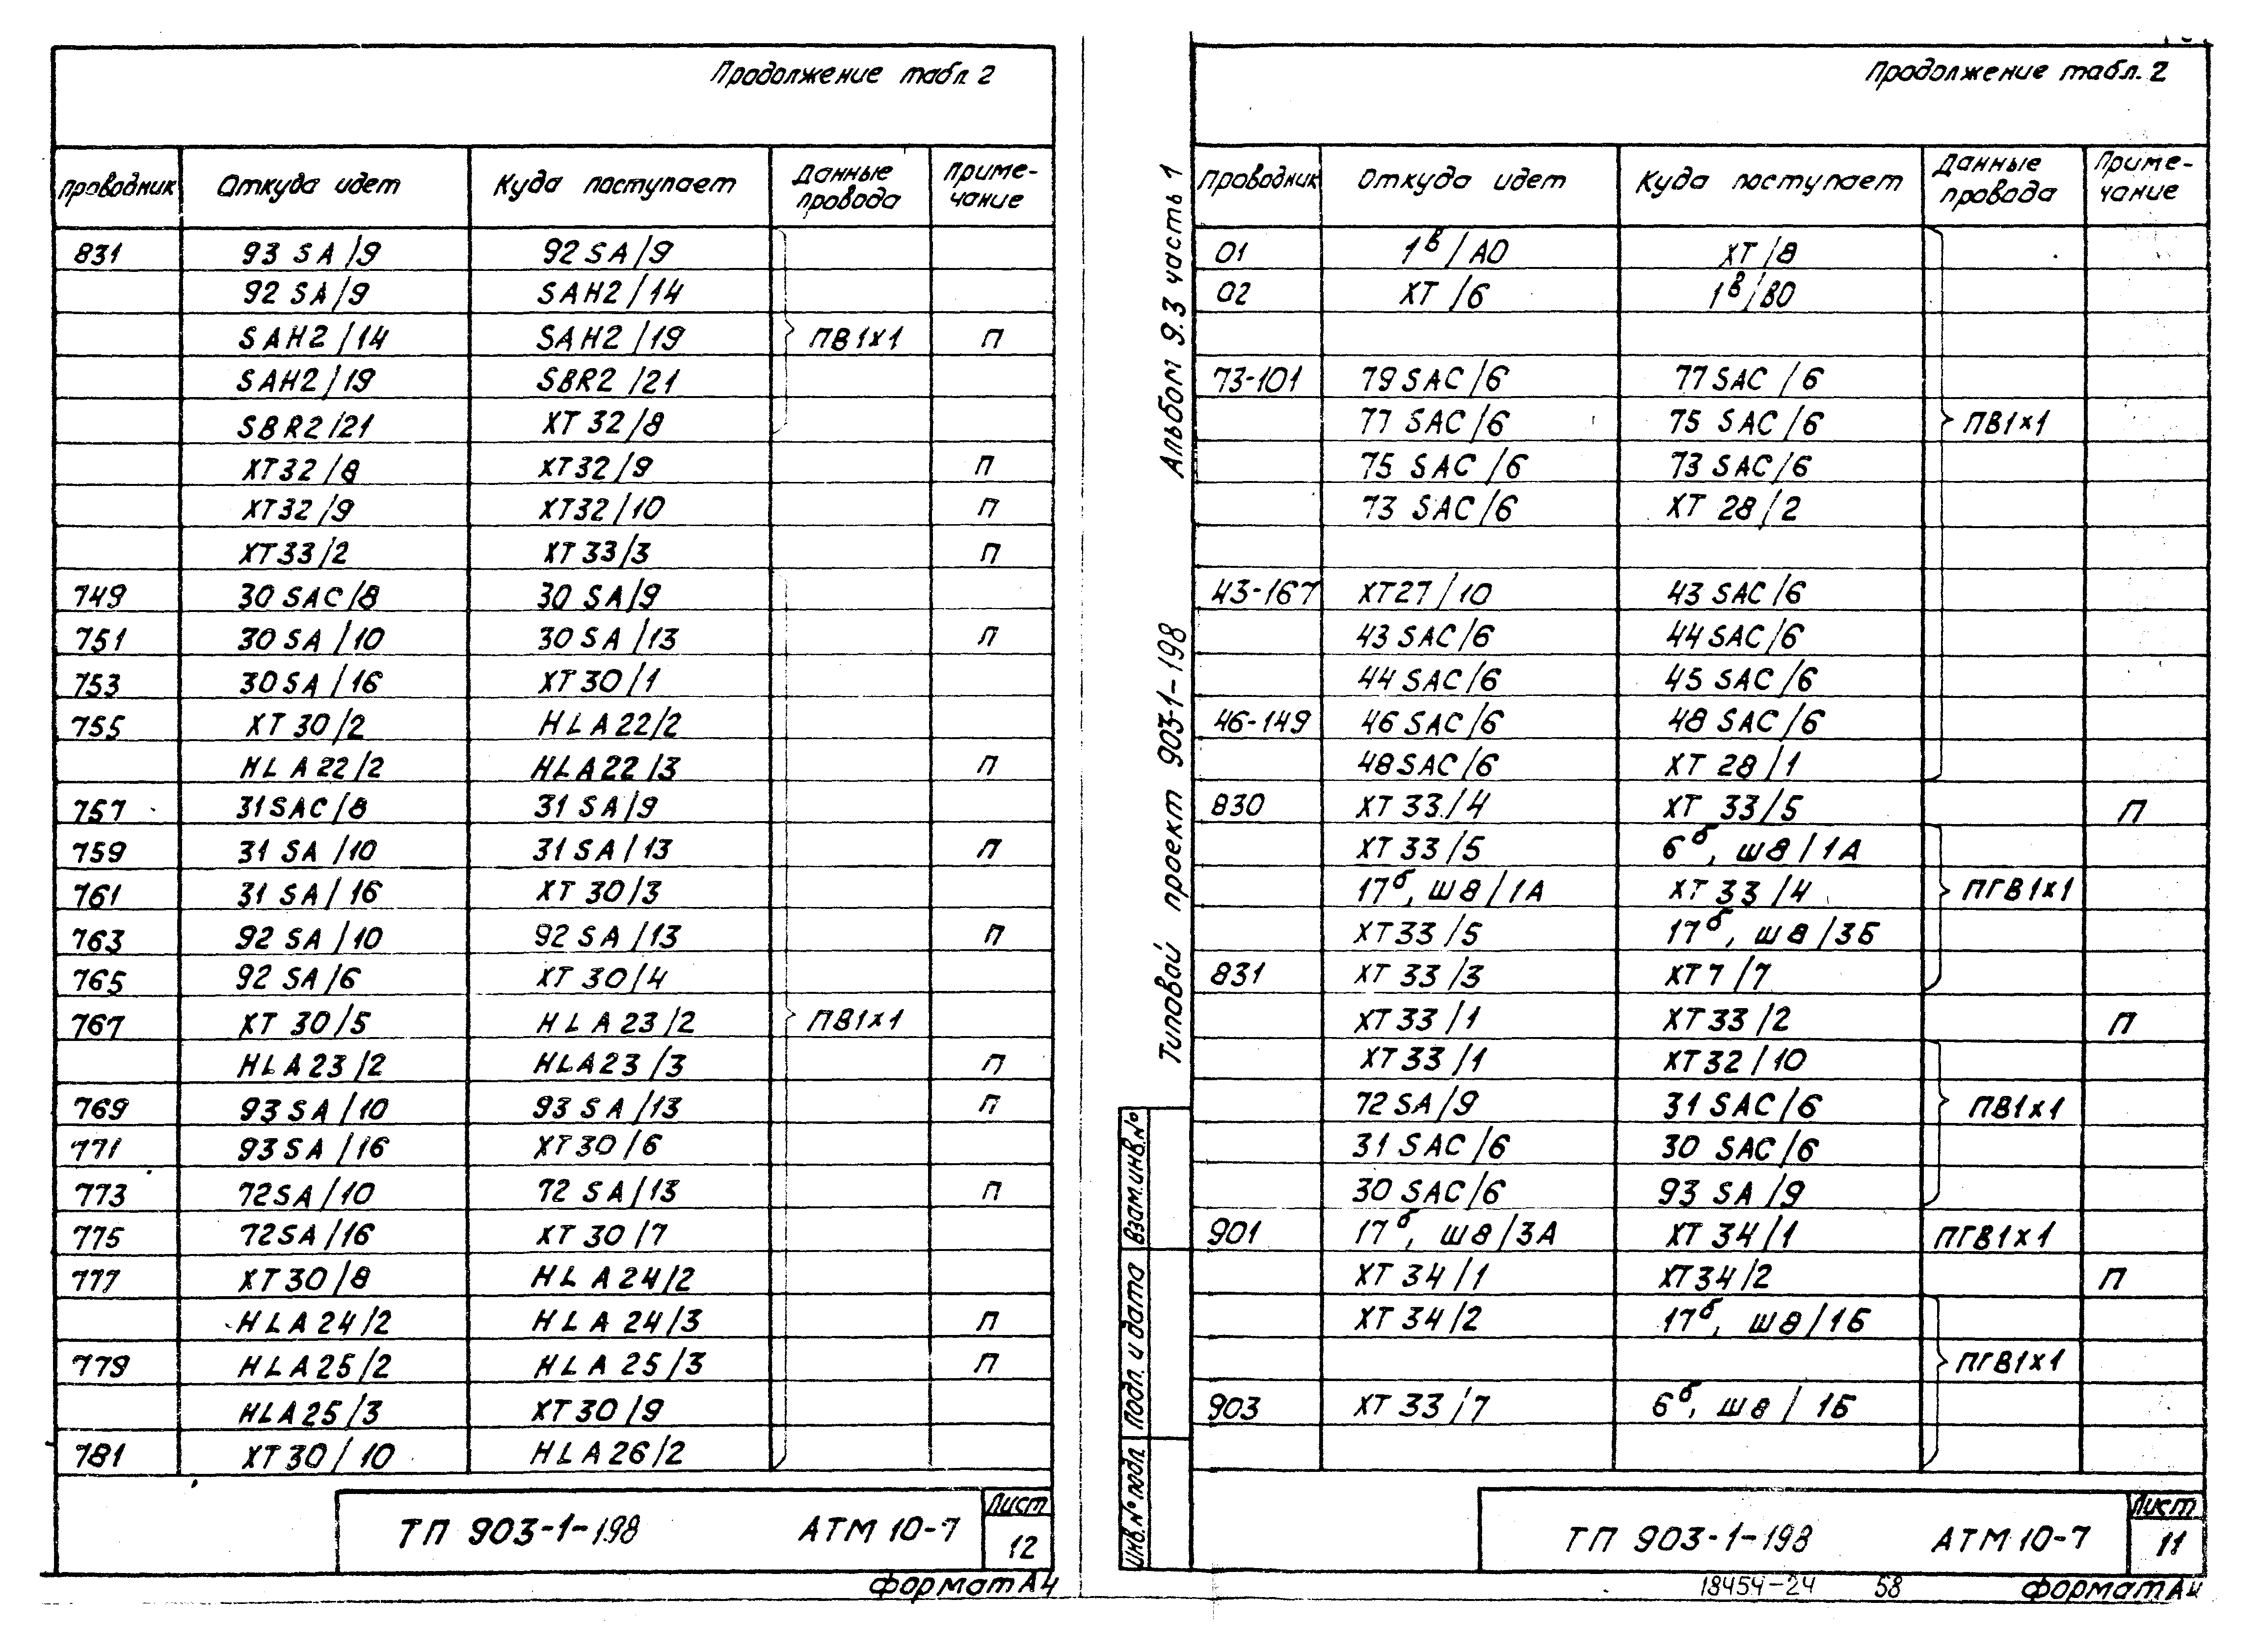 Продолжение табл. 2
Проводник Откуда идет Куда поступает Данные провода Примечание
831 93 SA/9 92 SA/9
92 SA/9 SAH2/14
SAH2/14 SAH2/19 ПВ1х1 П
SAH2/19 SBR2/21
SBR2/21 XT32/8
XT32/8 XT32/9 П
XT32/9 XT32/10 П
XT33/2 XT33/3 П
749 30 SAC/8 30 SA/9
751 30 SA/10 30 SA/13 П
753 30 SA/16 XT30/1
755 XT30/2 HLA22/2
HLA22/2 HLA22/3 П
757 31 SAC/8 31 SA/9
759 31 SA/10 31 SA/13 П
761 31 SA/16 XT30/3
763 92 SA/10 92 SA/13 П
765 92 SA/6 XT30/4
767 XT30/5 HLA23/2 ПВ1х1
HLA23/2 HLA23/3 П
769 93 SA/10 93 SA/13 П
771 93 SA/16 XT30/6
773 72 SA/10 72 SA/13 П
775 72 SA/16 XT30/7
777 XT30/8 HLA24/2
HLA24/2 HLA24/3 П
779 HLA25/2 HLA25/3 П
HLA25/3 XT30/9
781 XT30/10 HLA26/2
ТП 903-1-198 АТМ 10-7 Лист 12
формат А4
Продолжение табл. 2
Проводник Откуда идет Куда поступает Данные провода Примечание
01 1в/А0 XT/8
02 XT/6 1в/В0
73-101 79 SAC/6 77 SAC/6
77 SAC/6 75 SAC/6 ПВ1х1
75 SAC/6 73 SAC/6
73 SAC/6 XT28/2
43-167 XT27/10 43 SAC/6
43 SAC/6 44 SAC/6
44 SAC/6 45 SAC/6
46-149 46 SAC/6 48 SAC/6
48 SAC/6 XT28/1
830 XT33/4 XT33/5 П
XT33/5 6б, ш8/1А
17б, ш8/1А XT33/4 ПГВ1х1
XT33/5 17б, ш8/3Б
831 XT33/3 XT7/7
XT33/1 XT33/2 П
XT33/1 XT32/10
72 SA/9 31 SAC/6 ПВ1х1
31 SAC/6 30 SAC/6
30 SAC/6 93 SA/9
901 17б, ш8/3А XT34/1 ПГВ1х1
XT34/1 XT34/2 П
XT34/2 17б, ш8/1Б
ПГВ1х1
903 XT33/7 6б, ш8/1Б
ТП 903-1-198 АТМ 10-7 Лист 11
18454-24 58 формат А4
Типовой проект 903-1-198 Альбом 9.3 часть 1
Инв.№ подл. Подп. и дата Взам.инв.№